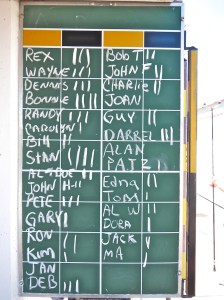 REX ||| BOB T ||
WAYNE ||| JOHN F |
DENNIS ||| CHARLIE ||
BONNIE |||| JOAN
RANDY ||| GUY ||
CAROLYN
BILL ||| DARREL |||
STAN |||| ALAN
PATZ
ALSSUE || EDNA ||
JOHN H-11 TOM |
PETE ||| AL W ||
GARY | DORA |
RON JACK
KIM | MA
JAN
DEB |||